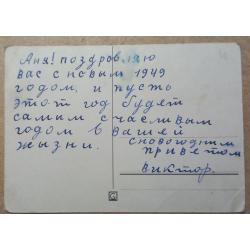 Аня! поздровляю
вас с новым 1949
годом, и пусть
этот год будет
самым счасливым
годом в вашей
жызни.
с новогодним
приветом
виктор.